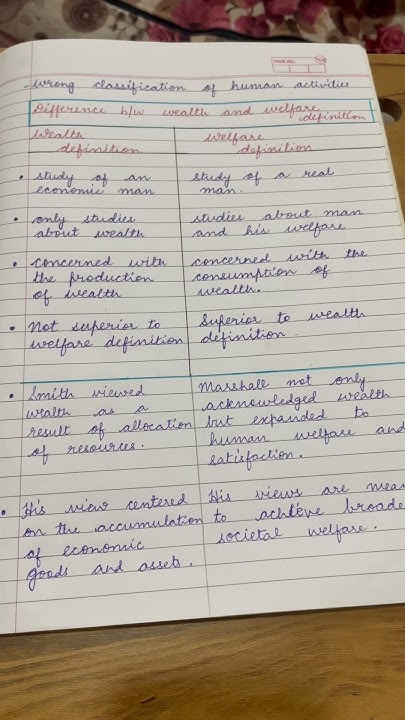 PAGE NO.
-wrong classification of human activities
Difference b/w wealth and welfare
definition
Wealth
definition
Welfare
definition
• study of an
economic man
study of a real
man.
• only studies
about wealth
studies about man
and his welfare
• concerned with
the production
of wealth
concerned with the
consumption of
wealth.
• Not superior to
welfare definition
Superior to wealth
definition.
• Smith viewed
wealth as a
result of allocation
of resources.
Marshall not only
acknowledged wealth
but expanded to
human welfare and
satisfaction.
• His view centered
on the accumulation
of economic
goods and assets.
His views are mean
to achieve broade
societal welfare.